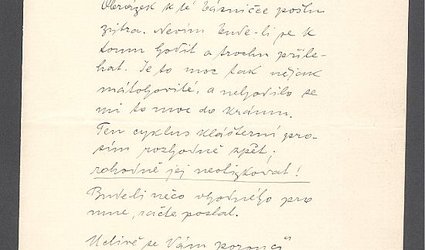 Obrázek k té básničce pošlu
zítra. Nevím bude-li se k
tomu hodit a trochu přilé-
hat. Je to moc tak nějak
mátohovité, a nehodilo se
mi to moc do krámu.
Ten cyklus klášterní pro-
sím rozhodně zpět,
rohodně jej neotiskovat!
Bude-li něco vhodného pro
mne, račte poslat.
Uctivě se Vám poroučí